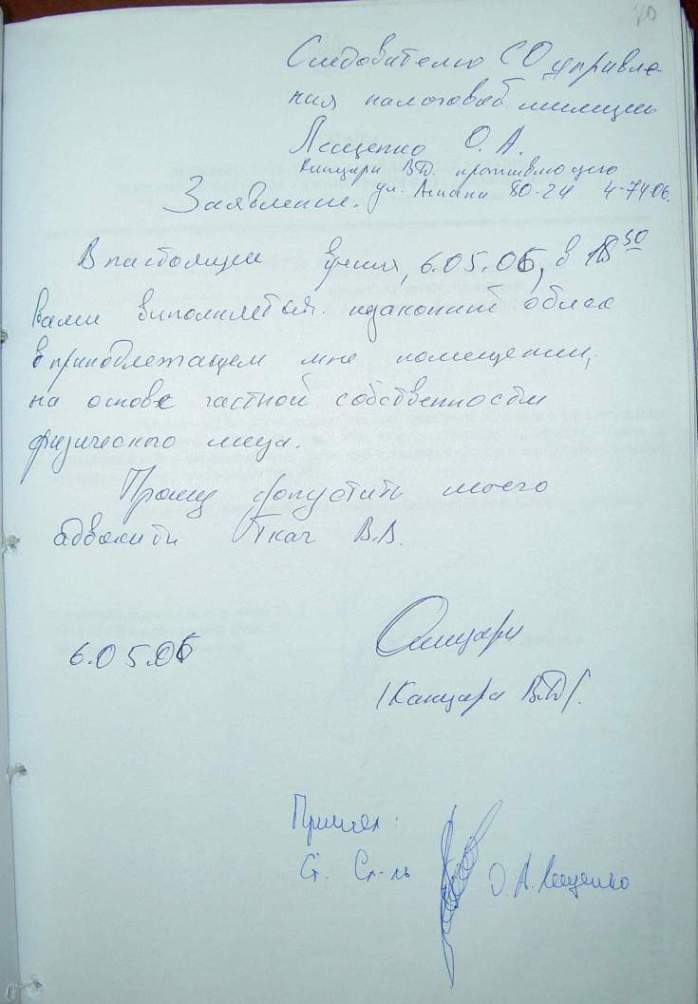 20
Следователю СО управле-
ния налоговой милиции
Лещенко О.А.
Канцари В.Д. проживающего
Заявление. ул. 80-24 4-7406.
В настоящее время, 6.05.06, в 18 30
вами виполняется незаконний обиск
в приноблежащем мне помещении,
на основе частной собственности
физического лица.
Прошу допустить моего
адвокати Ткач В.В.
6.05.06
/Канцари В.Д./
Принял:
Ст. Сл-ль О.А. Лещенко